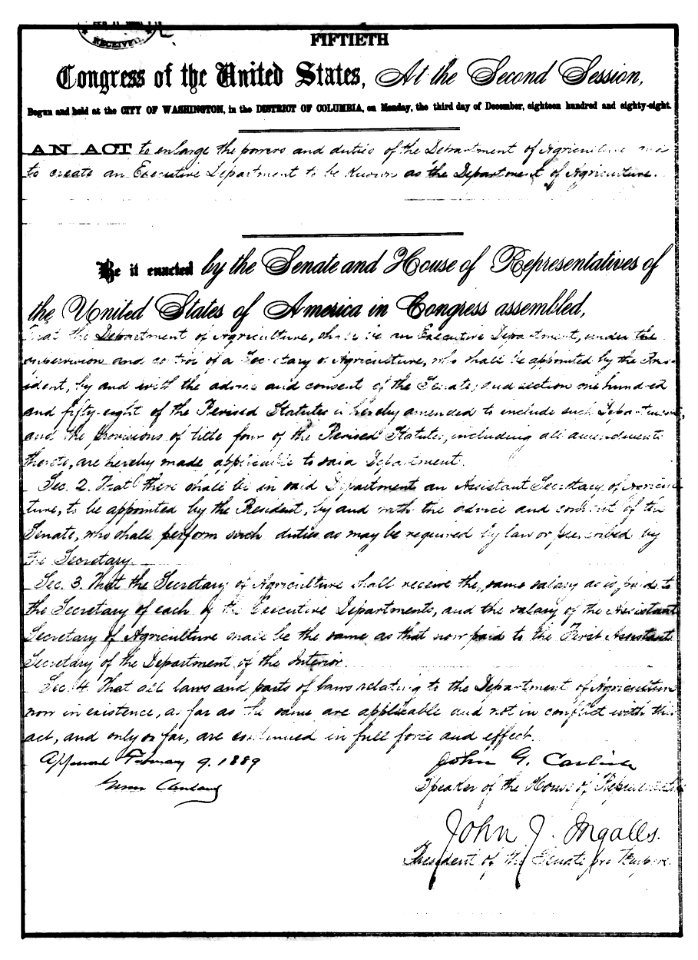 RECEIVED
FIFTIETH
Congress of the United States, At the Second Session,
Begun and held at the CITY OF WASHINGTON, in the DISTRICT OF COLUMBIA, on Monday, the third day of December, eighteen hundred and eighty-eight.
AN ACT to enlarge the powers and duties of the Department of Agriculture and
to create an Executive Department to be known as the Department of Agriculture.
Be it enacted by the Senate and House of Representatives of
the United States of America in Congress assembled,
That the Department of Agriculture, shall be an Executive Department, under the
supervision and control of a Secretary of Agriculture, who shall be appointed by the Pres-
ident, by and with the advice and consent of the Senate; and section one hundred
and fifty-eight of the Revised Statutes is hereby amended to include such Department,
and the provisions of title four of the Revised Statutes, including all amendments
thereto, are hereby made applicable to said Department.
Sec. 2. That there shall be in said Department an Assistant Secretary of Agricul-
ture, to be appointed by the President, by and with the advice and consent of the
Senate, who shall perform such duties as may be required by law or prescribed by
the Secretary.
Sec. 3. That the Secretary of Agriculture shall receive the same salary as is paid to
the Secretary of each of the Executive Departments, and the salary of the Assistant
Secretary of Agriculture shall be the same as that now paid to the First Assistant
Secretary of the Department of the Interior.
Sec. 4. That all laws and parts of laws relating to the Department of Agriculture
now in existence, as far as the same are applicable and not in conflict with this
act, and only so far, are continued in full force and effect.
Approved February 9, 1889
Grover Cleveland
John G. Carlisle
Speaker of the House of Representatives
John J. Ingalls.
President of the Senate pro tempore.